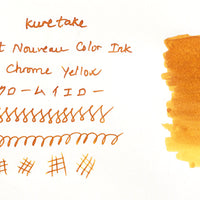 Kuretake
t Nouveau Color Ink
Chrome Yellow